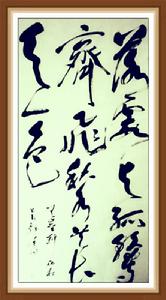 落霞与孤鹜
齊飛秋水共长
天一色